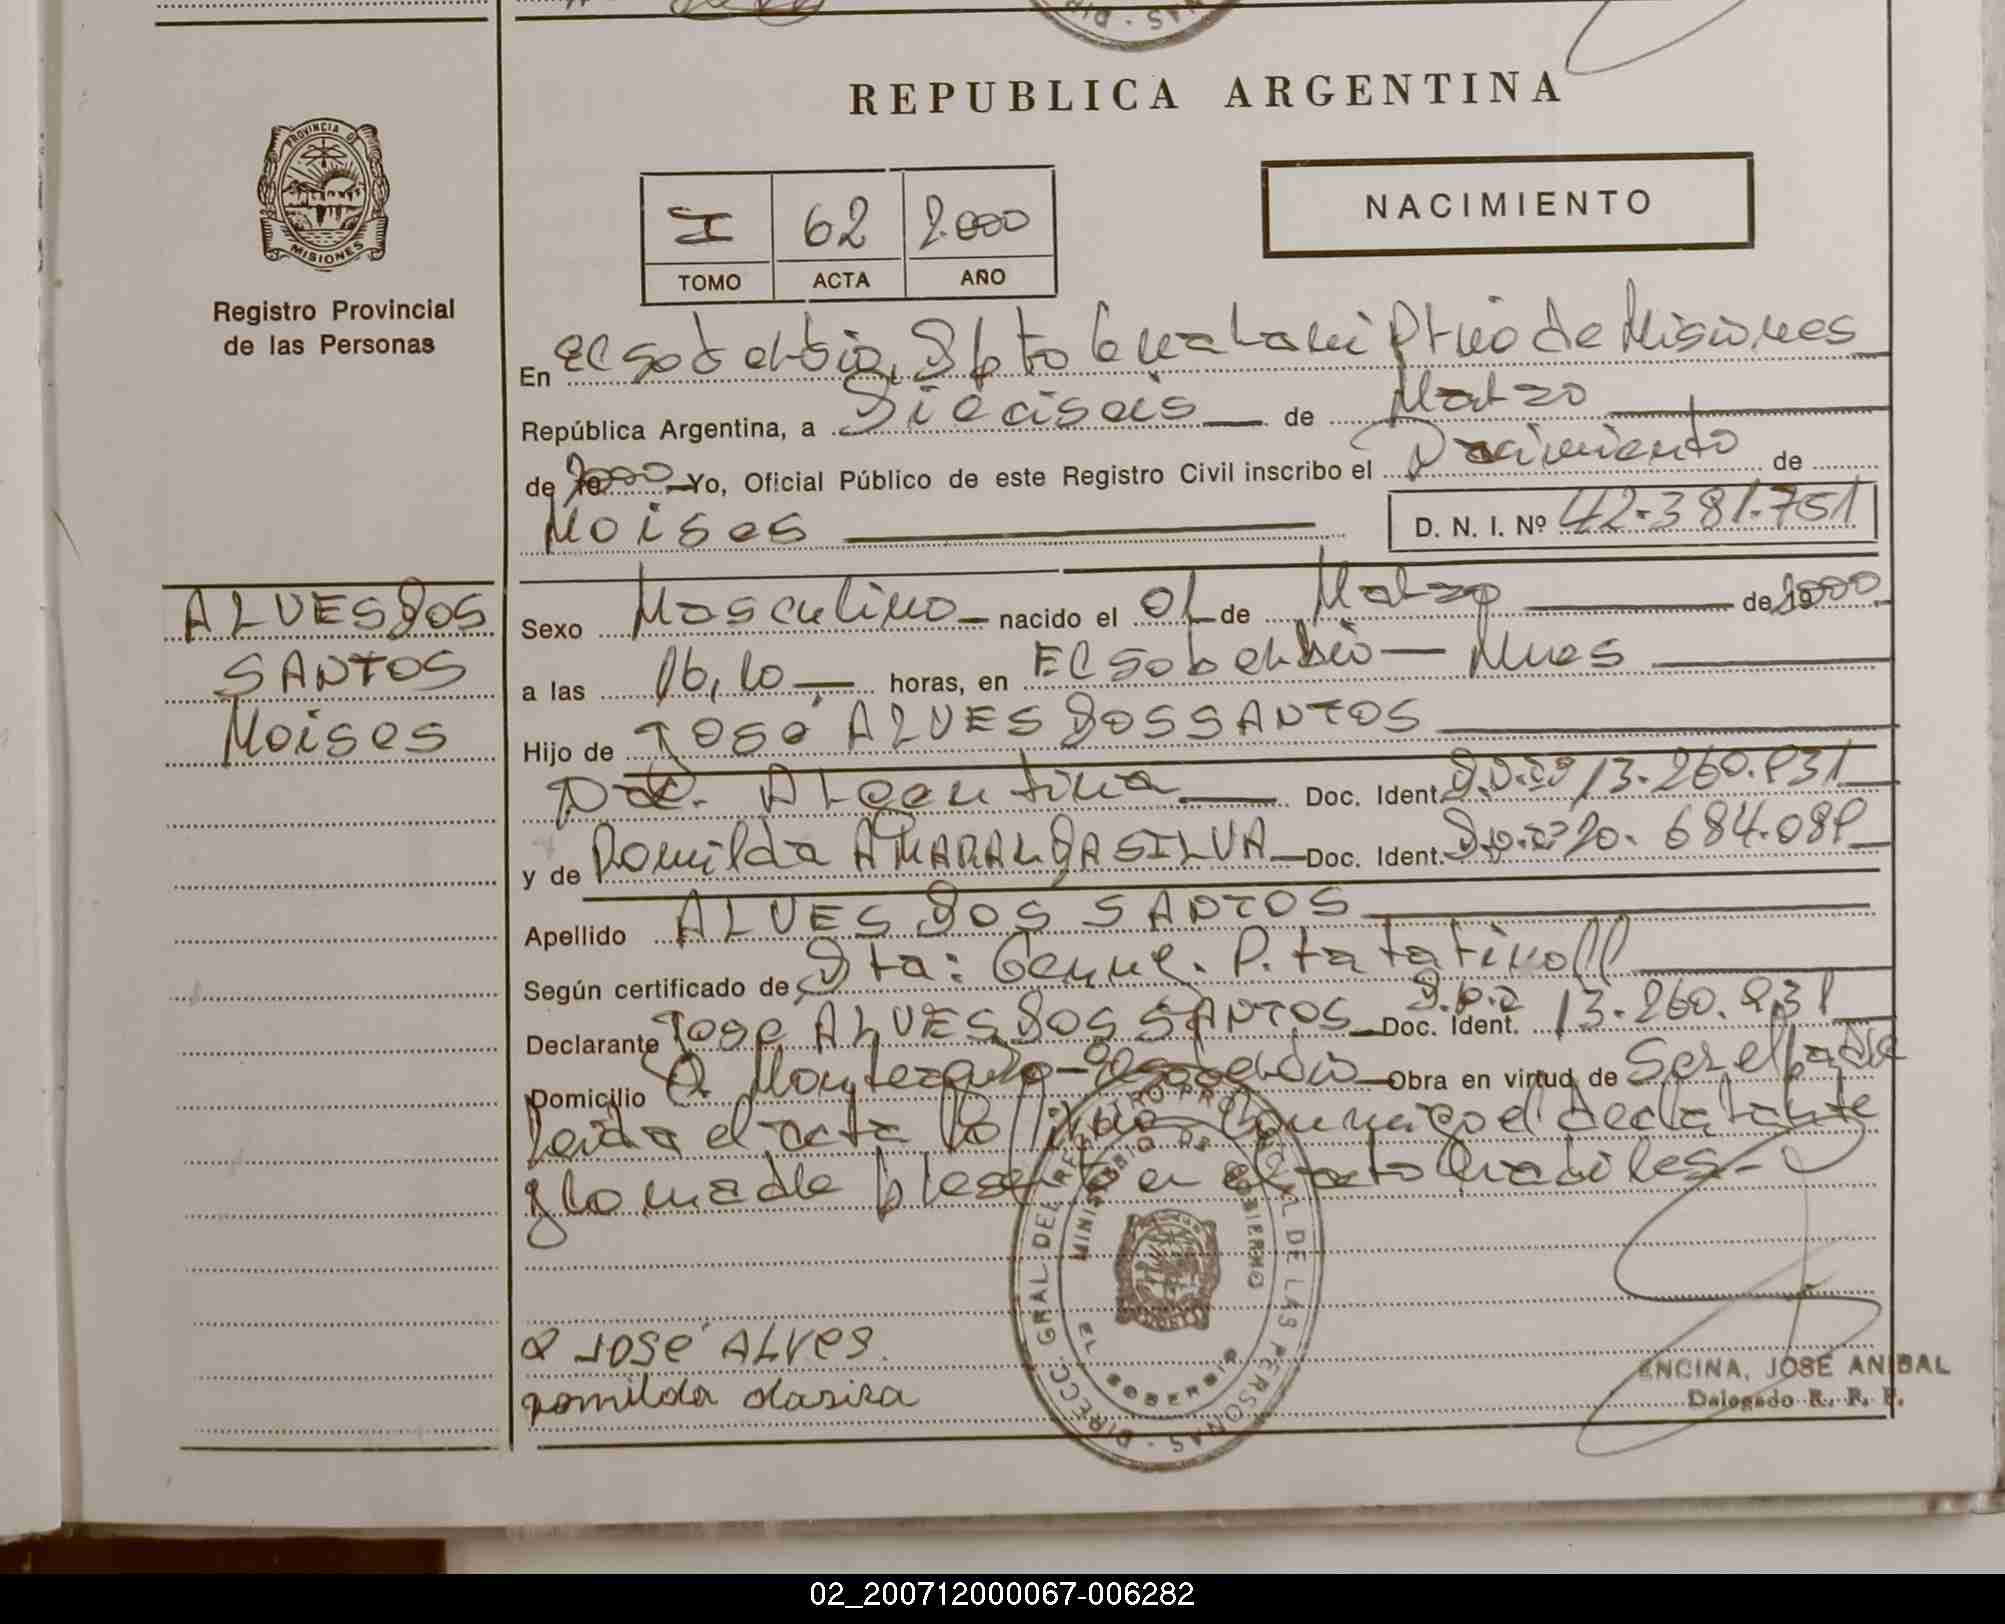 REPUBLICA ARGENTINA
PROVINCIA DE MISIONES
Registro Provincial
de las Personas
I 62 2.000
TOMO ACTA AÑO
NACIMIENTO
En El Soberbio, Dpto Guarani Pcio de Misiones
República Argentina, a Dieciseis de Marzo
de 2000 Yo, Oficial Público de este Registro Civil inscribo el Nacimiento de
Moises D. N. I. Nº 42.381.751
ALVES DOS
SANTOS
Moises
Sexo Masculino nacido el 01 de Marzo de 2000
a las 16,10 horas, en El Soberbio - Mnes
Hijo de José ALVES DOS SANTOS
Nac. Argentina Doc. Ident. D.N.I. 13.260.931
y de Romilda AMARAL DA SILVA Doc. Ident. D.N.I. 20.684.081
Apellido ALVES DOS SANTOS
Según certificado de Dta:
Declarante Jose ALVES DOS SANTOS Doc. Ident. D.N.I. 13.260.931
Domicilio Monteagudo - El Soberbio Obra en virtud de Ser el padre
Leida el acta la firma conmigo el declarante
y la madre presente en el acto
JOSé ALVES.
romilda dasiva
DIRECC. GRAL DEL REGISTRO PROVINCIAL DE LAS PERSONAS
MINISTERIO DE GOBIERNO
EL SOBERBIO
ENCINA, JOSE ANIBAL
Delegado R. P. P.
02_200712000067-006282